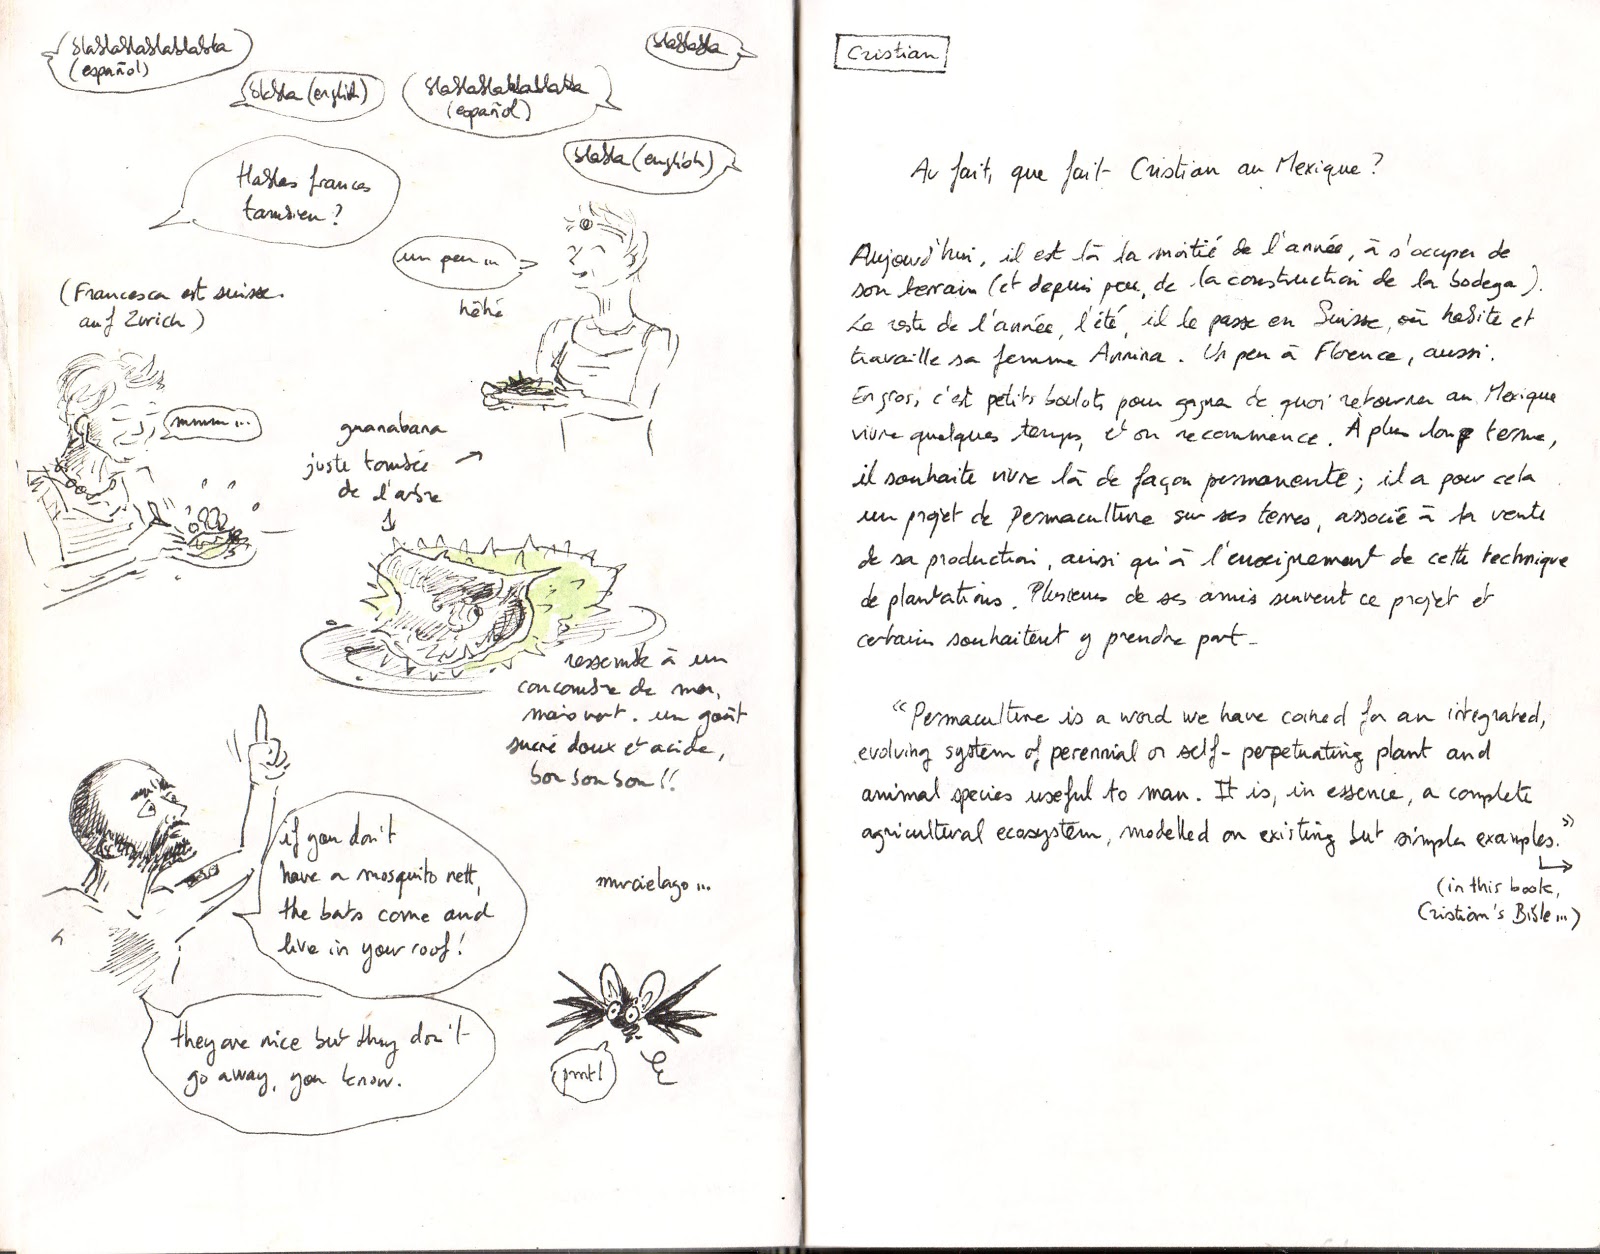 blablablablablabla
(español)
blabla (english)
blablablablablabla
(español)
blablabla
blabla (english)
Hables frances
tambien?
un peu...
héhé
(Francesca est suisse.
auf Zurich)
mmm...
guanabana
juste tombée
de l'arbre
ressemble à un
concombre de mer,
mais vert. un goût
sucré doux et acide,
bon bon bon!!
if you don't
have a mosquito nett,
the bats come and
live in your roof!
they are nice but they don't
go away, you know.
murcielago...
prrt!
Cristian
Au fait, que fait Cristian au Mexique?
Aujourd'hui, il est là la moitié de l'année, à s'occuper de
son terrain (et depuis peu, de la construction de la bodega).
Le reste de l'année, l'été, il le passe en Suisse, où habite et
travaille sa femme Annina. Un peu à Florence, aussi.
En gros, c'est petits boulots pour gagner de quoi retourner au Mexique
vivre quelques temps, et on recommence. À plus long terme,
il souhaite vivre là de façon permanente; il a pour cela
un projet de permaculture sur ses terres, associé à la vente
de sa production, ainsi qu'à l'enseignement de cette technique
de plantations. Plusieurs de ses amis suivent ce projet et
certains souhaitent y prendre part-
"Permaculture is a word we have coined for an integrated,
evolving system of perennial or self-perpetuating plant and
animal species useful to man. It is, in essence, a complete
agricultural ecosystem, modelled on existing but simpler examples."
(in this book,
Cristian's Bible...)